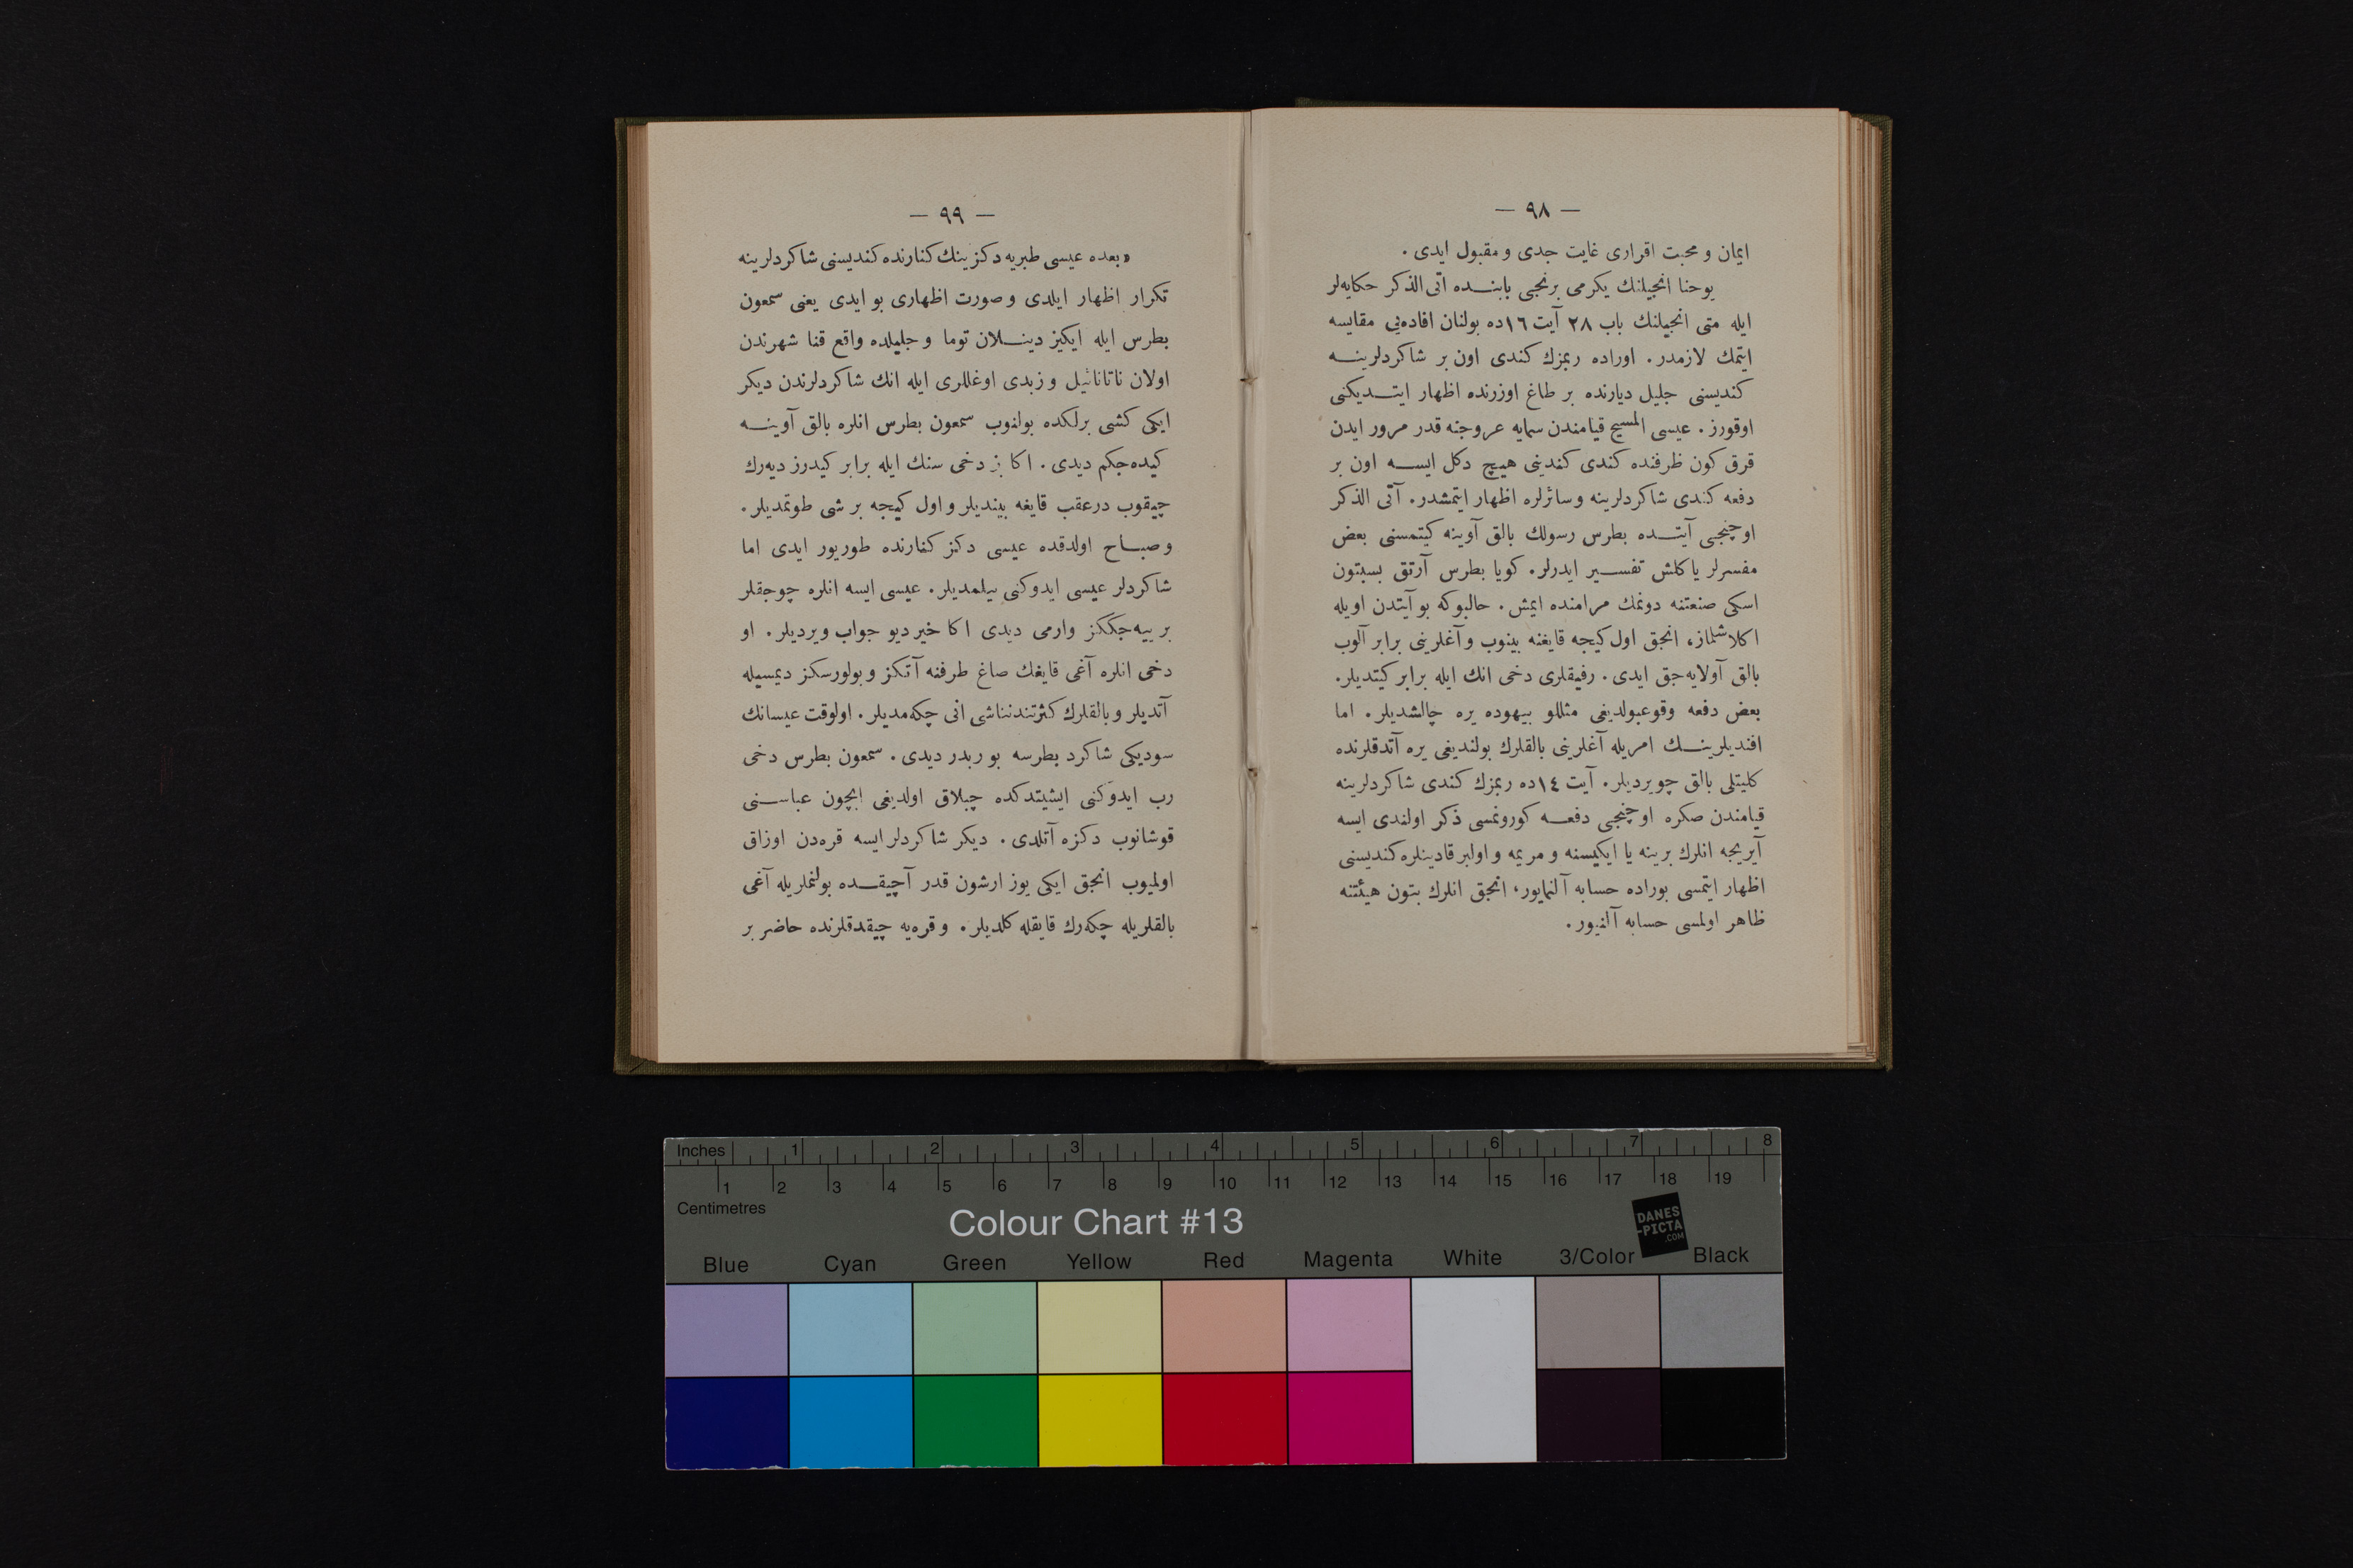 — ٩٨ —
ایمان و محبت اقراری غایت جدی و مقبول ایدی .
یوحنا انجیلنك یکرمی برنجی بابنـــده اتی الذکر حکایه‌لر
ایله متی انجیلنك باب ٢٨ آیت ١٦ده بولنان افاده‌یی مقایسه
ایتمك لازمدر . اوراده ربمزك کندی اون بر شاکردلرینـــه
کندیسنی جلیل دیارنده بر طاغ اوزرنده اظهار ایتـــدیکنی
اوقورز . عیسی المسیح قیامندن سمایه عروجنه قدر مرور ایدن
قرق کون ظرفنده کندی کندینی هیچ دکل ایســـه اون بر
دفعه کندی شاکردلرینه وسائرلره اظهار ایتمشدر . آتی الذکر
اوچنجی آیتـــده بطرس رسولك بالق آوینه کیتمسنی بعض
مفسرلر یاکلش تفســـیر ایدرلر . کویا بطرس آرتق بسبتون
اسکی صنعتنه دونمك مرامنده ایمش . حالبوکه بو آیتدن اویله
اکلاشلماز ، انجق اول کیجه قایغنه بینوب و آغلرینی برابر آلوب
بالق آولایه‌جق ایدی . رفیقلری دخی انك ایله برابر کیتدیلر .
بعض دفعه وقوعبولدیغی مثللو بیهوده یره چالشدیلر . اما
افندیلرینـــك امریله آغلرینی بالقلرك بولندیغی یره آتدقلرنده
کلیتلی بالق چویردیلر . آیت ١٤ده ربمزك کندی شاکردلرینه
قیامندن صکره اوچنجی دفعـــه کورونمسی ذکر اولندی ایسه
آیریجه انلرك برینه یا ایکیسنه و مریمه و اولبر قادینلره کندیسنی
اظهار ایتمسی بوراده حسابه آلنمایور ، انجق انلرك بتون هیئتنه
ظاهر اولمسی حسابه آلنیور .
— ٩٩ —
«بعده عیسی طبریه دکزینك کنارنده کندیسنی شاکردلرینه
تکرار اظهار ایلدی و صورت اظهاری بو ایدی یعنی سمعون
بطرس ایله ایکیز دینـــلان توما و جلیلده واقع قنا شهرندن
اولان ناتانائیل و زبدی اوغللری ایله انك شاکردلرندن دیکر
ایکی کشی برلکده بولنوب سمعون بطرس انلره بالق آوینـــه
کیده‌جکم دیدی . اکا بز دخی سنك ایله برابر کیدرز دیه‌رك
چیقوب درعقب قایغه بیندیلر و اول کیجه بر شی طوتمدیلر .
و صبـــاح اولدقده عیسی دکز کنارنده طوریور ایدی اما
شاکردلر عیسی ایدوکنی بیلمدیلر . عیسی ایسه انلره چوجقلر
بر ییه‌جککز وارمی دیدی اکا خیر دیو جواب ویردیلر . او
دخی انلره آغی قایغك صاغ طرفنه آتکز و بولورسکز دیمسیله
آتدیلر و بالقلرك کثرتندنناشی انی چکه‌مدیلر . اولوقت عیسانك
سودیکی شاکرد بطرسه بو ربدر دیدی . سمعون بطرس دخی
رب ایدوکنی ایشیتدکده چپلاق اولدیغی ایچون عباســـنی
قوشانوب دکزه آتلدی . دیکر شاکردلر ایسه قره‌دن اوزاق
اولمیوب انجق ایکی یوز ارشون قدر آچیقـــده بولنملریله آغی
بالقلریله چکه‌رك قایقله کلدیلر . و قره‌یه چیقدقلرنده حاضر بر
Inches 1 2 3 4 5 6 7 8
1 2 3 4 5 6 7 8 9 10 11 12 13 14 15 16 17 18 19
Centimetres
Colour Chart #13
DANES
-PICTA
.COM
Blue Cyan Green Yellow Red Magenta White 3/Color Black